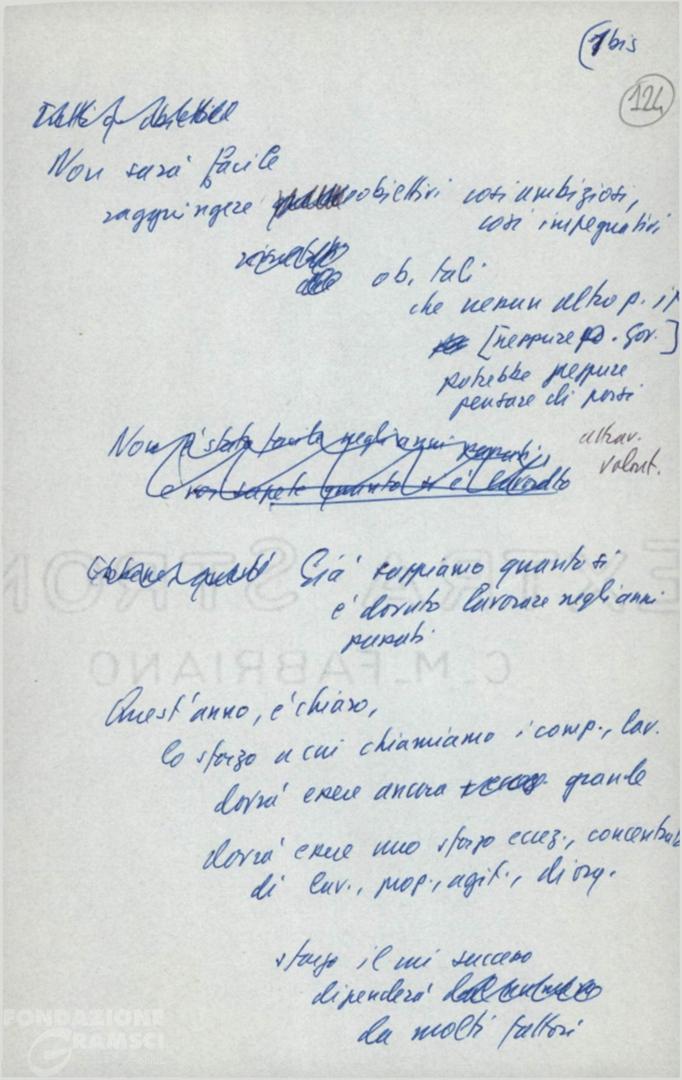 1 bis
124
Non sarà facile
raggiungere obiettivi così ambiziosi,
così impegnativi
ob. tali
che nessun altro p. it
[neppure p. Gov.]
potrebbe neppure
pensare di porsi
attrav.
volont.
Non è stato facile negli anni passati,
e voi sapete quanto si è lavorato
Già sappiamo quanto si
è dovuto lavorare negli anni
passati
Quest'anno, è chiaro,
lo sforzo a cui chiamiamo i comp., lav.
dovrà essere ancora grande
dovrà essere uno sforzo eccez., concentrato
di lav., prop., agit., di org.
sforzo il cui successo
dipenderà
da molti fattori
EXTRA STRONG
C.M. FABRIANO
FONDAZIONE
GRAMSCI